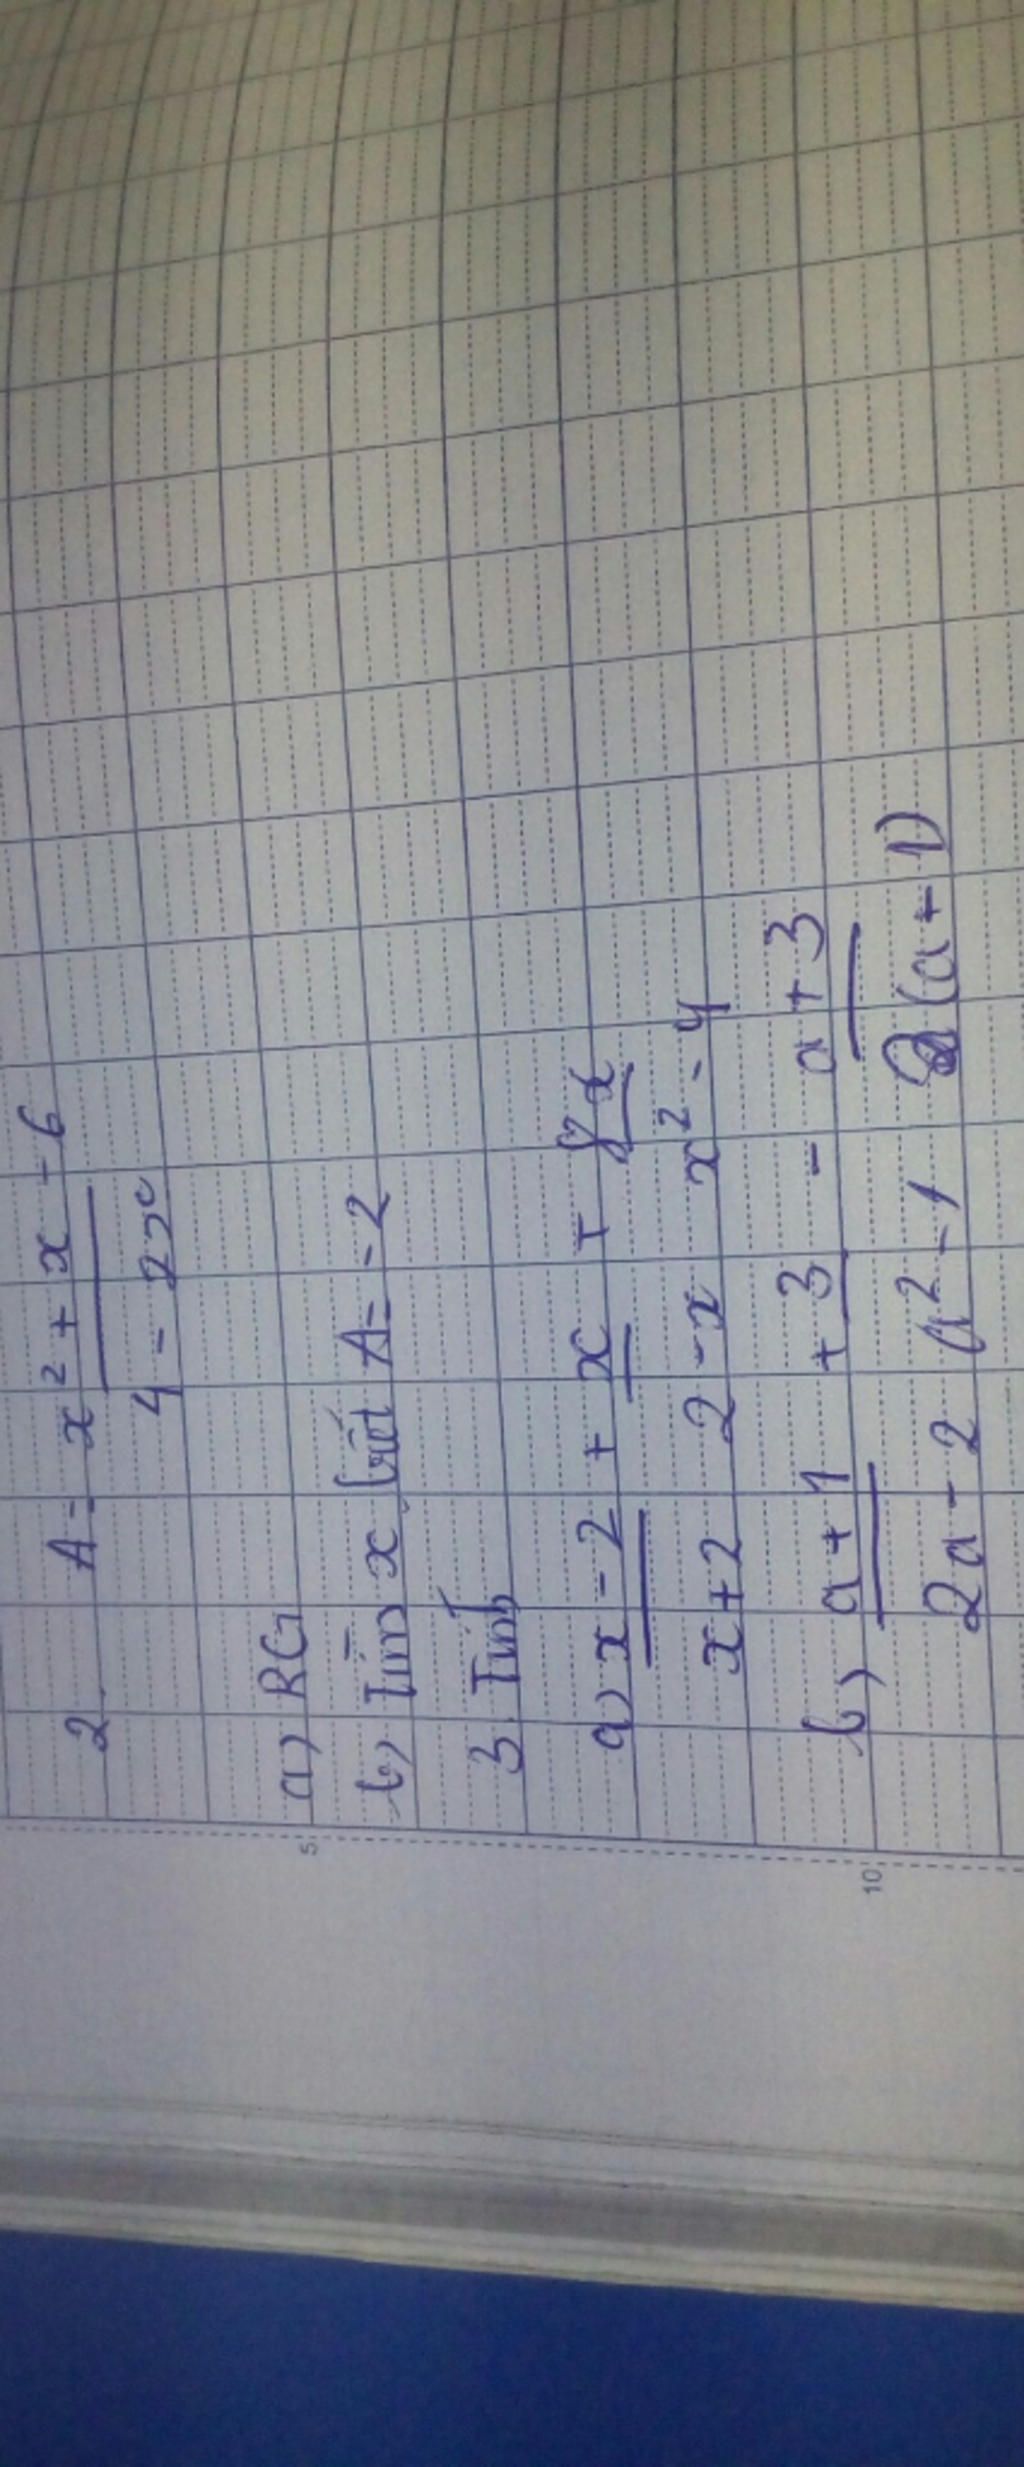 2. A = x² + x - 6
4 - 2x
a) RG
b) Tìm x biết A = -2
3. Tính
a) x - 2 + x + 8x
x+2 2-x x² - 4
b) a+1 + 3 - a+3
2a - 2 a² - 1 2(a+1)
5
10